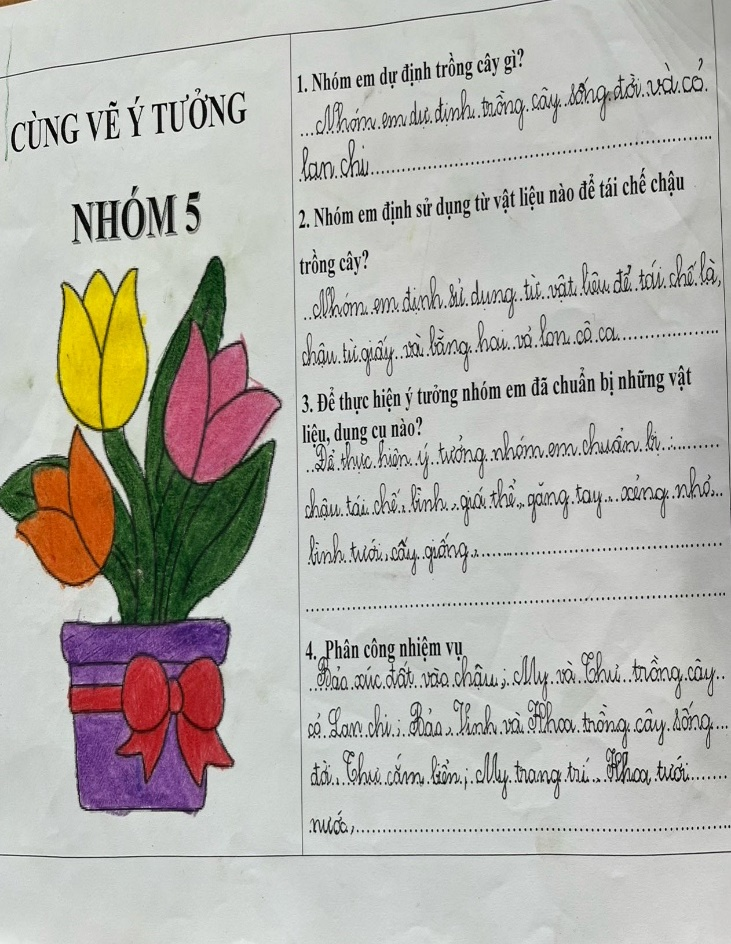 CÙNG VẼ Ý TƯỞNG
NHÓM 5
1. Nhóm em dự định trồng cây gì?
Nhóm em dự định trồng cây sống đời và cỏ
lan chi
2. Nhóm em định sử dụng từ vật liệu nào để tái chế chậu
trồng cây?
Nhóm em định sử dụng từ vật liệu để tái chế là,
chậu từ giấy và bằng hai vỏ lon cô ca
3. Để thực hiện ý tưởng nhóm em đã chuẩn bị những vật
liệu, dụng cụ nào?
Để thực hiện ý tưởng nhóm em chuẩn bị :
chậu tái chế, bình, giá thể, găng tay, xẻng nhỏ,
bình tưới, cây giống,
4. Phân công nhiệm vụ
Bảo xúc đất vào chậu ; My và Thư trồng cây
cỏ Lan chi ; Bảo, Vinh và Khoa trồng cây sống
đời. Thư cắm biển ; My trang trí, Khoa tưới
nước,